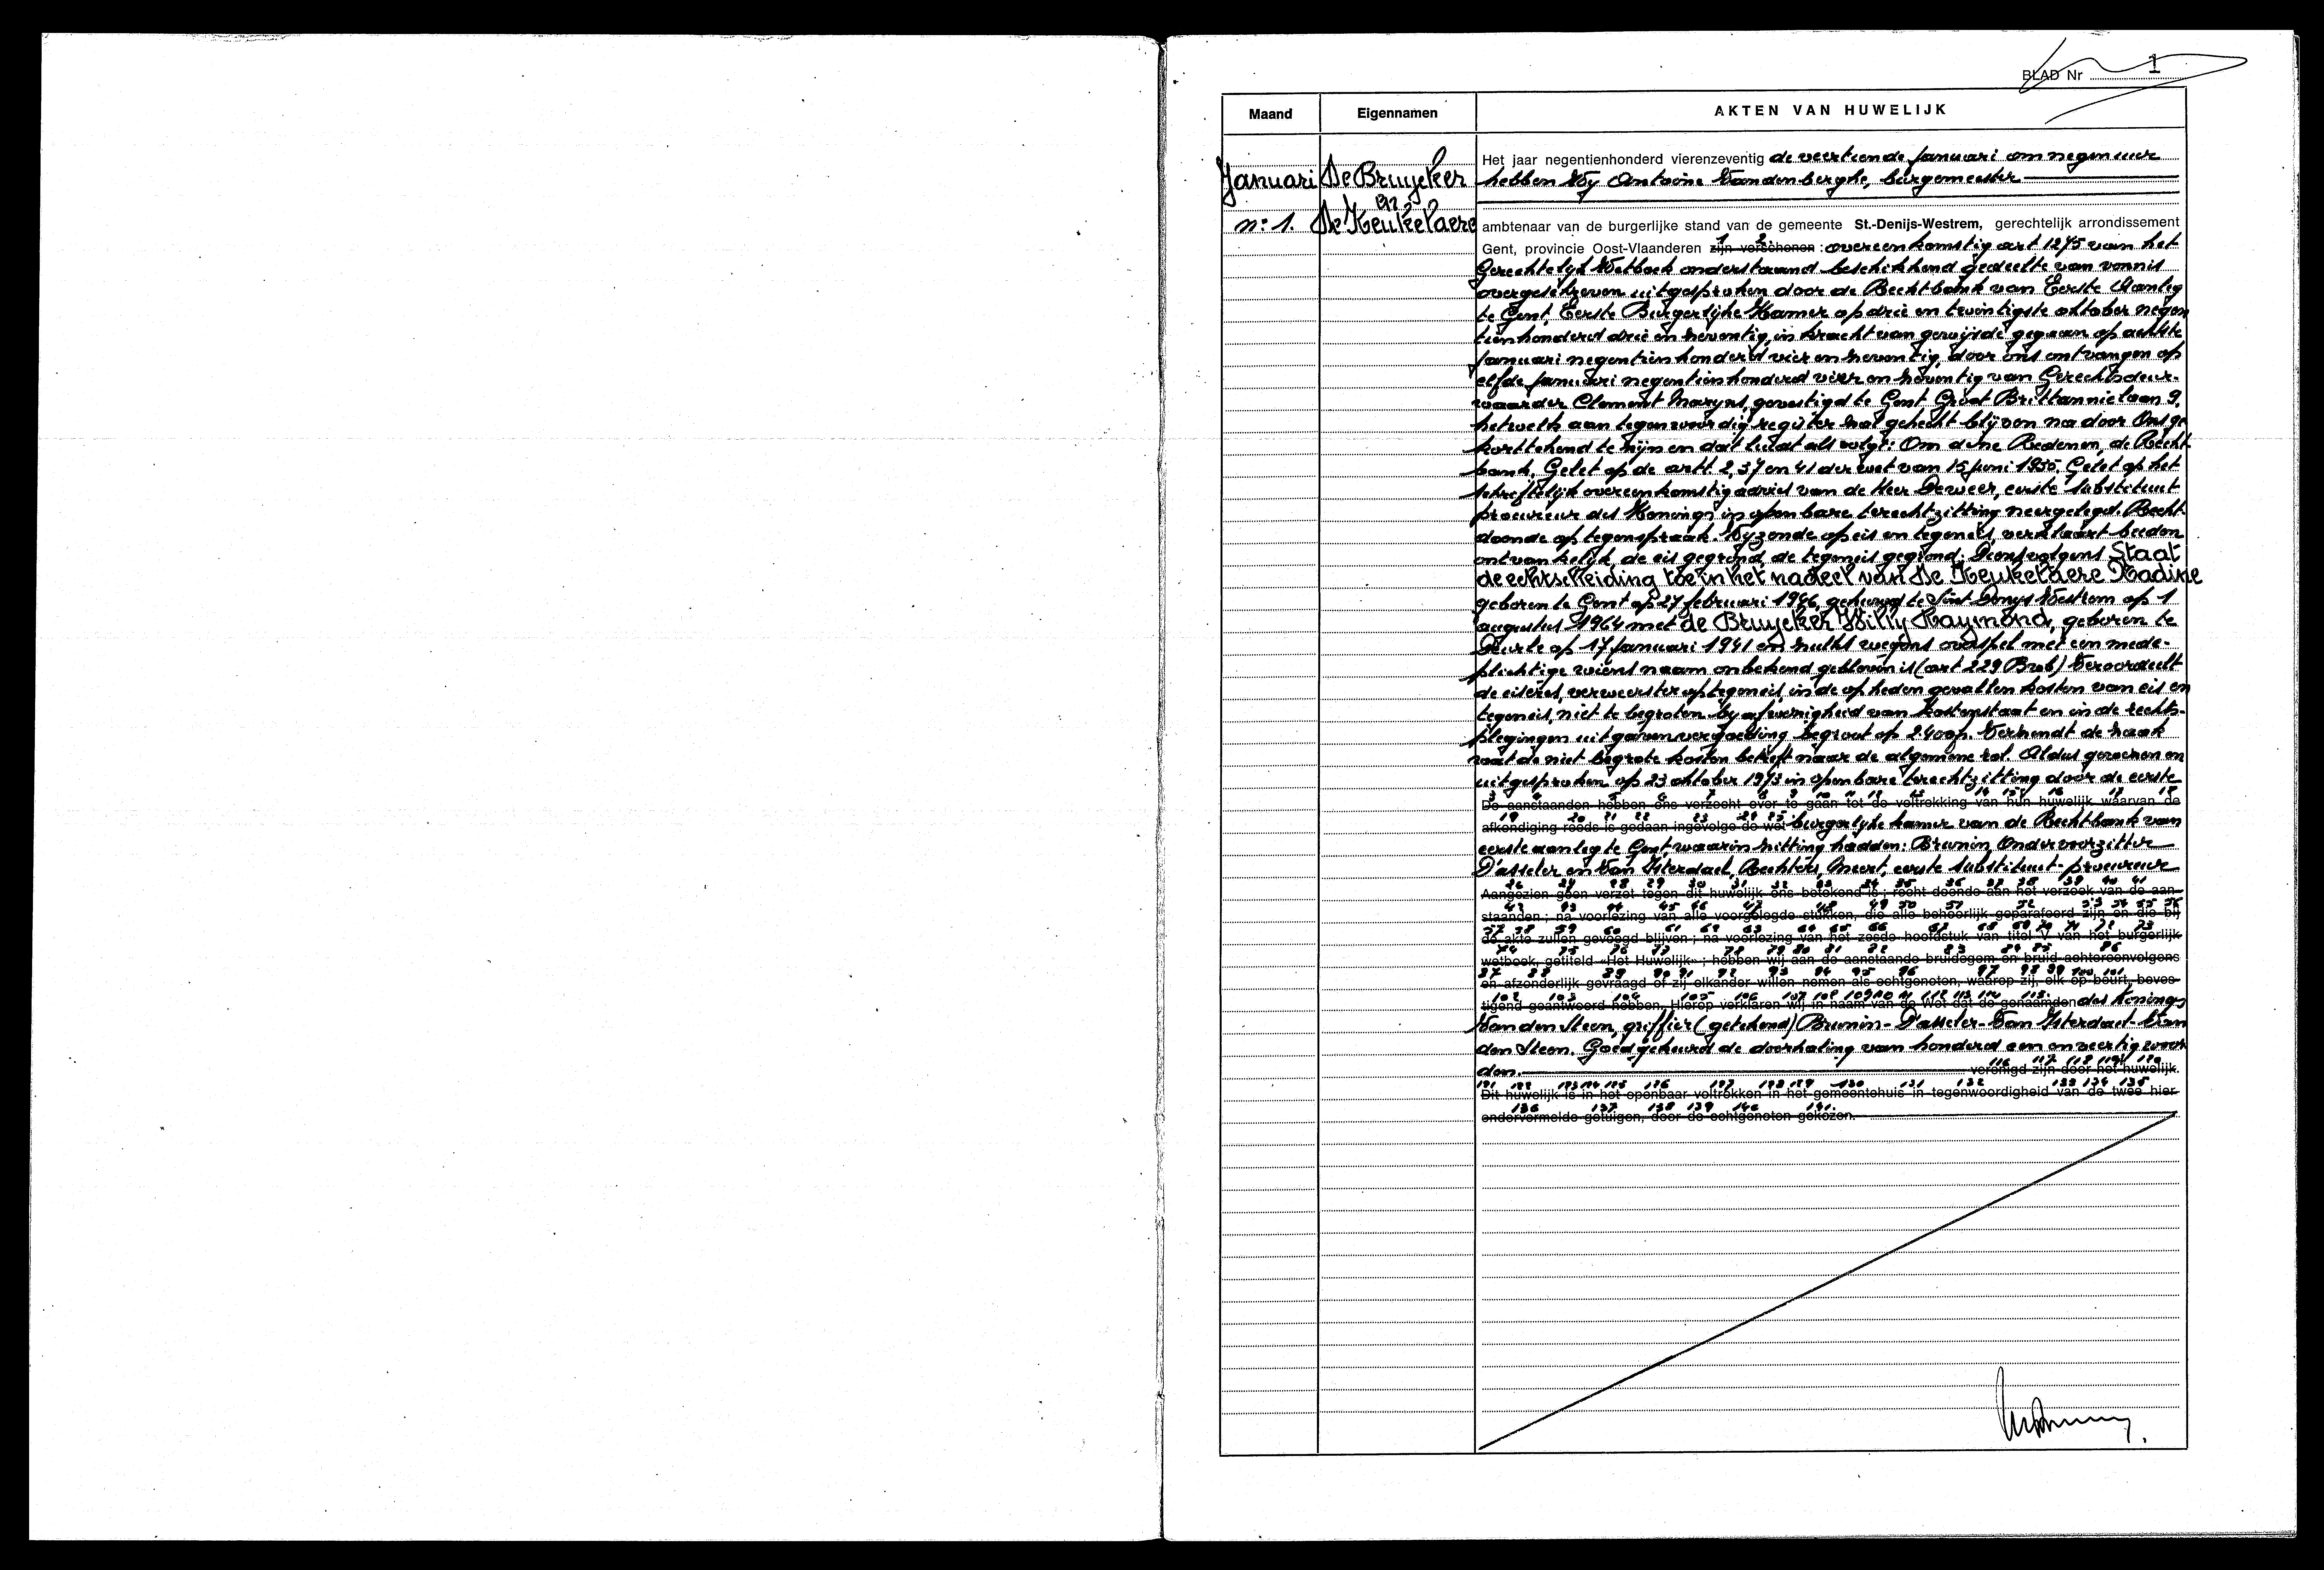 BLAD Nr 1
Maand Eigennamen AKTEN VAN HUWELIJK
Januari De Bruycker
en
n: 1. De Keukelaere
Het jaar negentienhonderd vierenzeventig de veertiende Januari om negen uur
hebben Wij Antoine Vandenberghe, burgemeester
ambtenaar van de burgerlijke stand van de gemeente St.-Denijs-Westrem, gerechtelijk arrondissement
1 2
Gent, provincie Oost-Vlaanderen zijn verschenen : overeenkomstig art 1275 van het
Gerechtelijk Wetboek onderstaand beschikkend gedeelte van vonnis
overgeschreven uitgesproken door de Rechtbank van Eerste Aanleg
te Gent, Eerste Burgerlijke Kamer op drie en twintigste oktober negen
tienhonderd drie en zeventig, in kracht van gewijsde gegaan op achtste
Januari negentienhonderd vier en zeventig, door ons ontvangen op
elfde Januari negentienhonderd vier en zeventig van Gerechtsdeur-
waarder Clement Maryns, gevestigd te Gent Groot Brittannielaan 9,
hetwelk aan tegenwoordig register zal gehecht blijven na door Ons ge
korttekend te zijn en dat luidt als volgt: Om deze Redenen, de Recht-
bank, Gelet op de artt 2, 37 en 41 der wet van 15 juni 1935, Gelet op het
schriftelijk overeenkomstig advies van de Heer Deweer, eerste substituut
procureur des Konings in openbare terechtzitting neergelegd. Recht-
doende op tegenspraak. Wijzende op eis en tegeneis, verklaart beiden
ontvankelijk, de eis gegrond, de tegeneis gegrond. Dienvolgens Staat
de echtscheiding toe in het nadeel van De Keukelaere Nadine
geboren te Gent op 27 februari 1946, gehuwd te Sint Denys Westrem op 1
augustus 1964 met de Bruycker Willy Raymond, geboren te
Deurle op 17 januari 1941 en zulks wegens overspel met een mede-
plichtige wiens naam onbekend gebleven is (art 229 Brwb) Veroordeelt
de eiseres, verweerster op tegeneis, in de op heden gevallen kosten van eis en
tegeneis, niet te begroten bij afwezigheid van kostenstaat en in de rechts-
plegingen uitgavenvergoeding begroot op 2.400fr. Verzendt de zaak
wat de niet begrote kosten betreft naar de algemene rol. Aldus gewezen en
uitgesproken op 23 oktober 1973 in openbare terechtzitting door de eerste
3 4 5 6 7 8 9 10 11 12 13 14 15 16 17 18
De aanstaanden hebben ons verzocht over te gaan tot de voltrekking van hun huwelijk waarvan de
19 20 21 22 23 24 25
afkondiging reeds is gedaan ingevolge de wet burgerlyke kamer van de Rechtbank van
eerste aanleg te Gent, waarin zitting hadden: Brunin, Ondervoorzitter
D'asseler en Van Isterdael, Rechters, Meert, eerste substituut-procureur
26 27 28 29 30 31 32 33 34 35 36 37 38 39 40 41
Aangezien geen verzet tegen dit huwelijk ons betekend is ; recht doende aan het verzoek van de aan-
42 43 44 45 46 47 48 49 50 51 52 53 54 55 56
staanden ; na voorlezing van alle voorgelegde stukken, die alle behoorlijk geparafeerd zijn en die bij
57 58 59 60 61 62 63 64 65 66 67 68 69 70 71 72 73
de akte zullen gevoegd blijven ; na voorlezing van het zesde hoofdstuk van titel V van het burgerlijk
74 75 76 77 78 79 80 81 82 83 84 85 86
wetboek, getiteld «Het Huwelijk» ; hebben wij aan de aanstaande bruidegom en bruid achtereenvolgens
87 88 89 90 91 92 93 94 95 96 97 98 99 100 101
en afzonderlijk gevraagd of zij elkander willen nemen als echtgenoten, waarop zij, elk op beurt, beves-
102 103 104 105 106 107 108 109 110 111 112 113 114 115
tigend geantwoord hebben. Hierop verklaren wij in naam van de Wet dat de genaamden des Konings
Van den Steen, griffier (getekend) Brunin - D'asseler - Van Isterdael - Van
den Steen. Goedgekeurd de doorhaling van honderd een en veertig woor
116 117 118 119 120
den. verenigd zijn door het huwelijk.
121 122 123 124 125 126 127 128 129 130 131 132 133 134 135
Dit huwelijk is in het openbaar voltrokken in het gemeentehuis in tegenwoordigheid van de twee hier-
136 137 138 139 140 141
ondervermelde getuigen, door de echtgenoten gekozen.